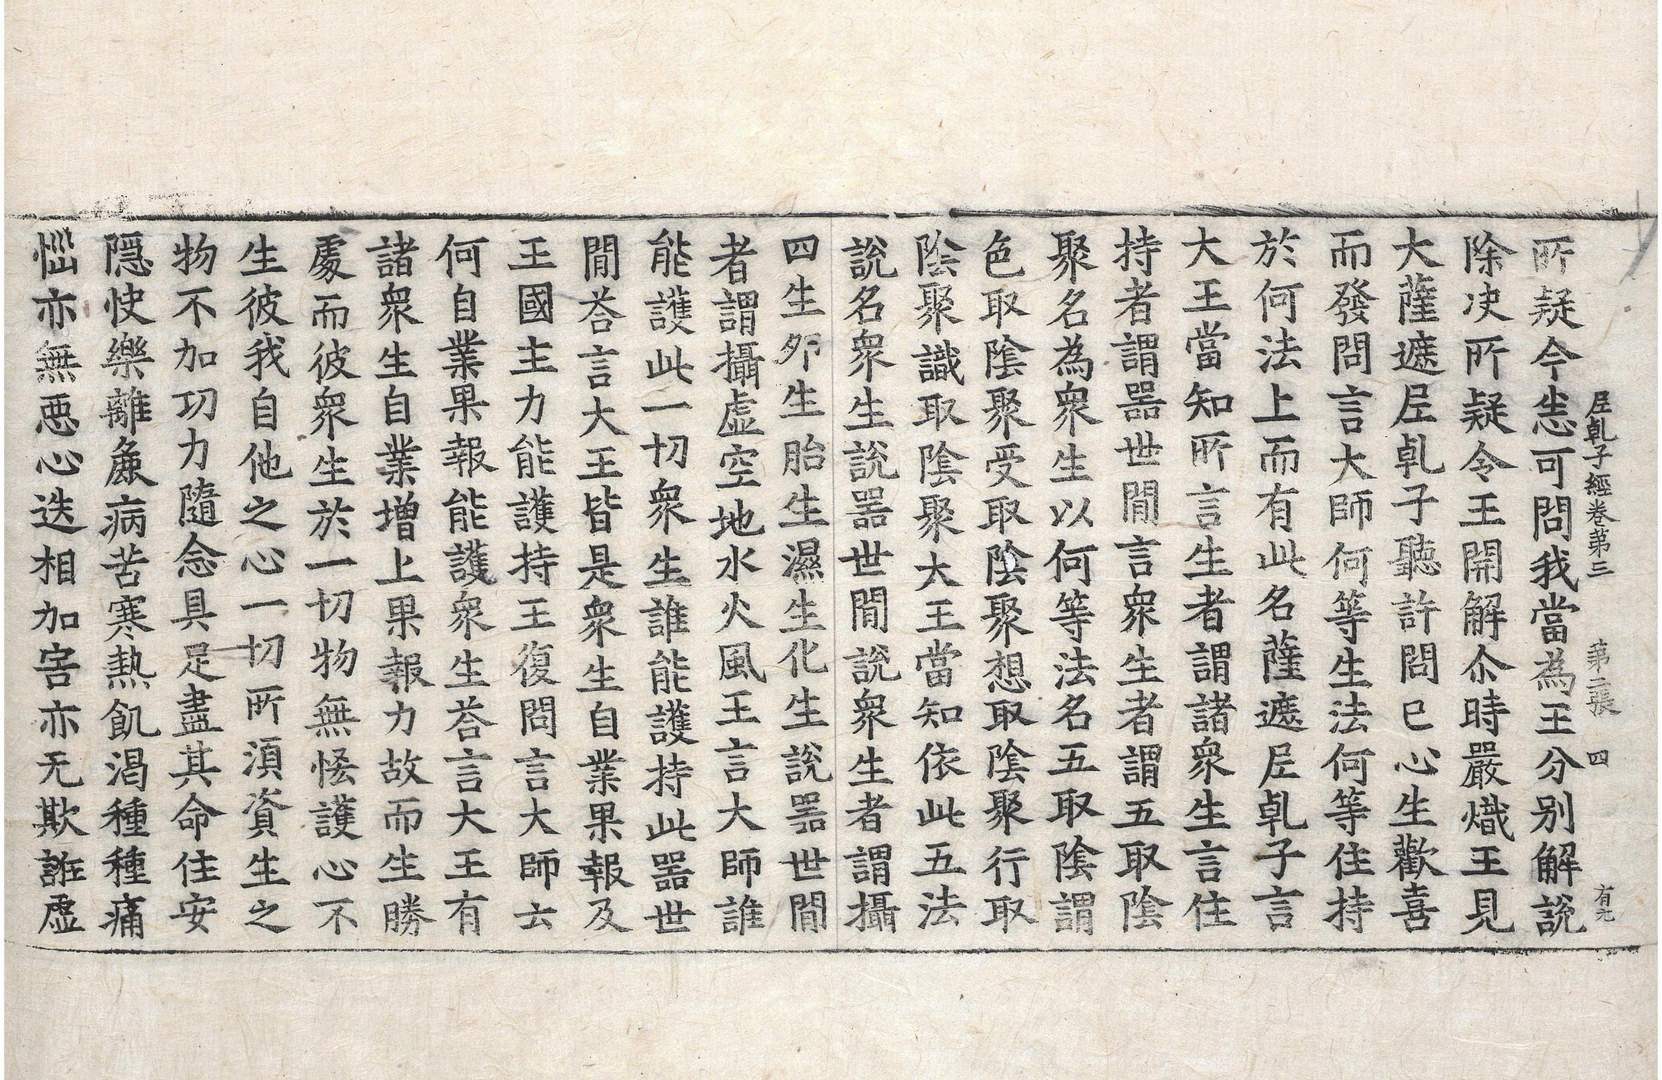 所疑今恣可問我當為王分別解說
尼乹子經卷第三 第二張 四 有九
除决所疑令王開解尒時嚴熾王見
大薩遮尼乹子聽許問已心生歡喜
而發問言大師何等生法何等住持
於何法上而有此名薩遮尼乹子言
大王當知所言生者謂諸衆生言住
持者謂器世間言衆生者謂五取陰
聚名為衆生以何等法名五取陰謂
色取陰聚受取陰聚想取陰聚行取
陰聚識取陰聚大王當知依此五法
說名衆生說器世間說衆生者謂攝
四生夘生胎生濕生化生說器世間
者謂攝虛空地水火風王言大師誰
能護此一切衆生誰能護持此器世
間荅言大王皆是衆生自業果報及
王國主力能護持王復問言大師云
何自業果報能護衆生荅言大王有
諸衆生自業增上果報力故而生勝
處而彼衆生於一切物無悋護心不
生彼我自他之心一切所湏資生之
物不加功力隨念具足盡其命住安
隱快樂離麁病苦寒熱飢渴種種痛
惱亦無惡心迭相加害亦无欺誑虛